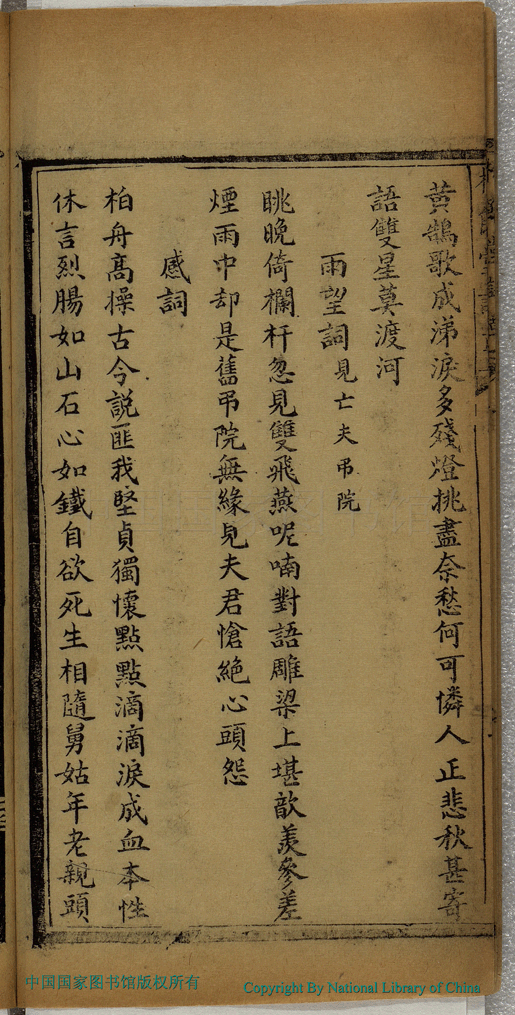 黄鵠歌成涕淚多殘燈挑盡奈愁何可憐人正悲秋甚寄
語雙星莫渡河
雨望詞見亡夫弔院
眺晚倚欄杆忽見雙飛燕呢喃對語雕梁上堪歆羨參差
煙雨中却是舊弔院無緣見夫君愴絶心頭怨
感詞
柏舟髙操古今說匪我堅貞獨懷點點滴滴淚成血本性
休言烈腸如山石心如鐵自欲死生相隨舅姑年老親頭
中国国家图书馆版权所有
Copyright By National Library of China